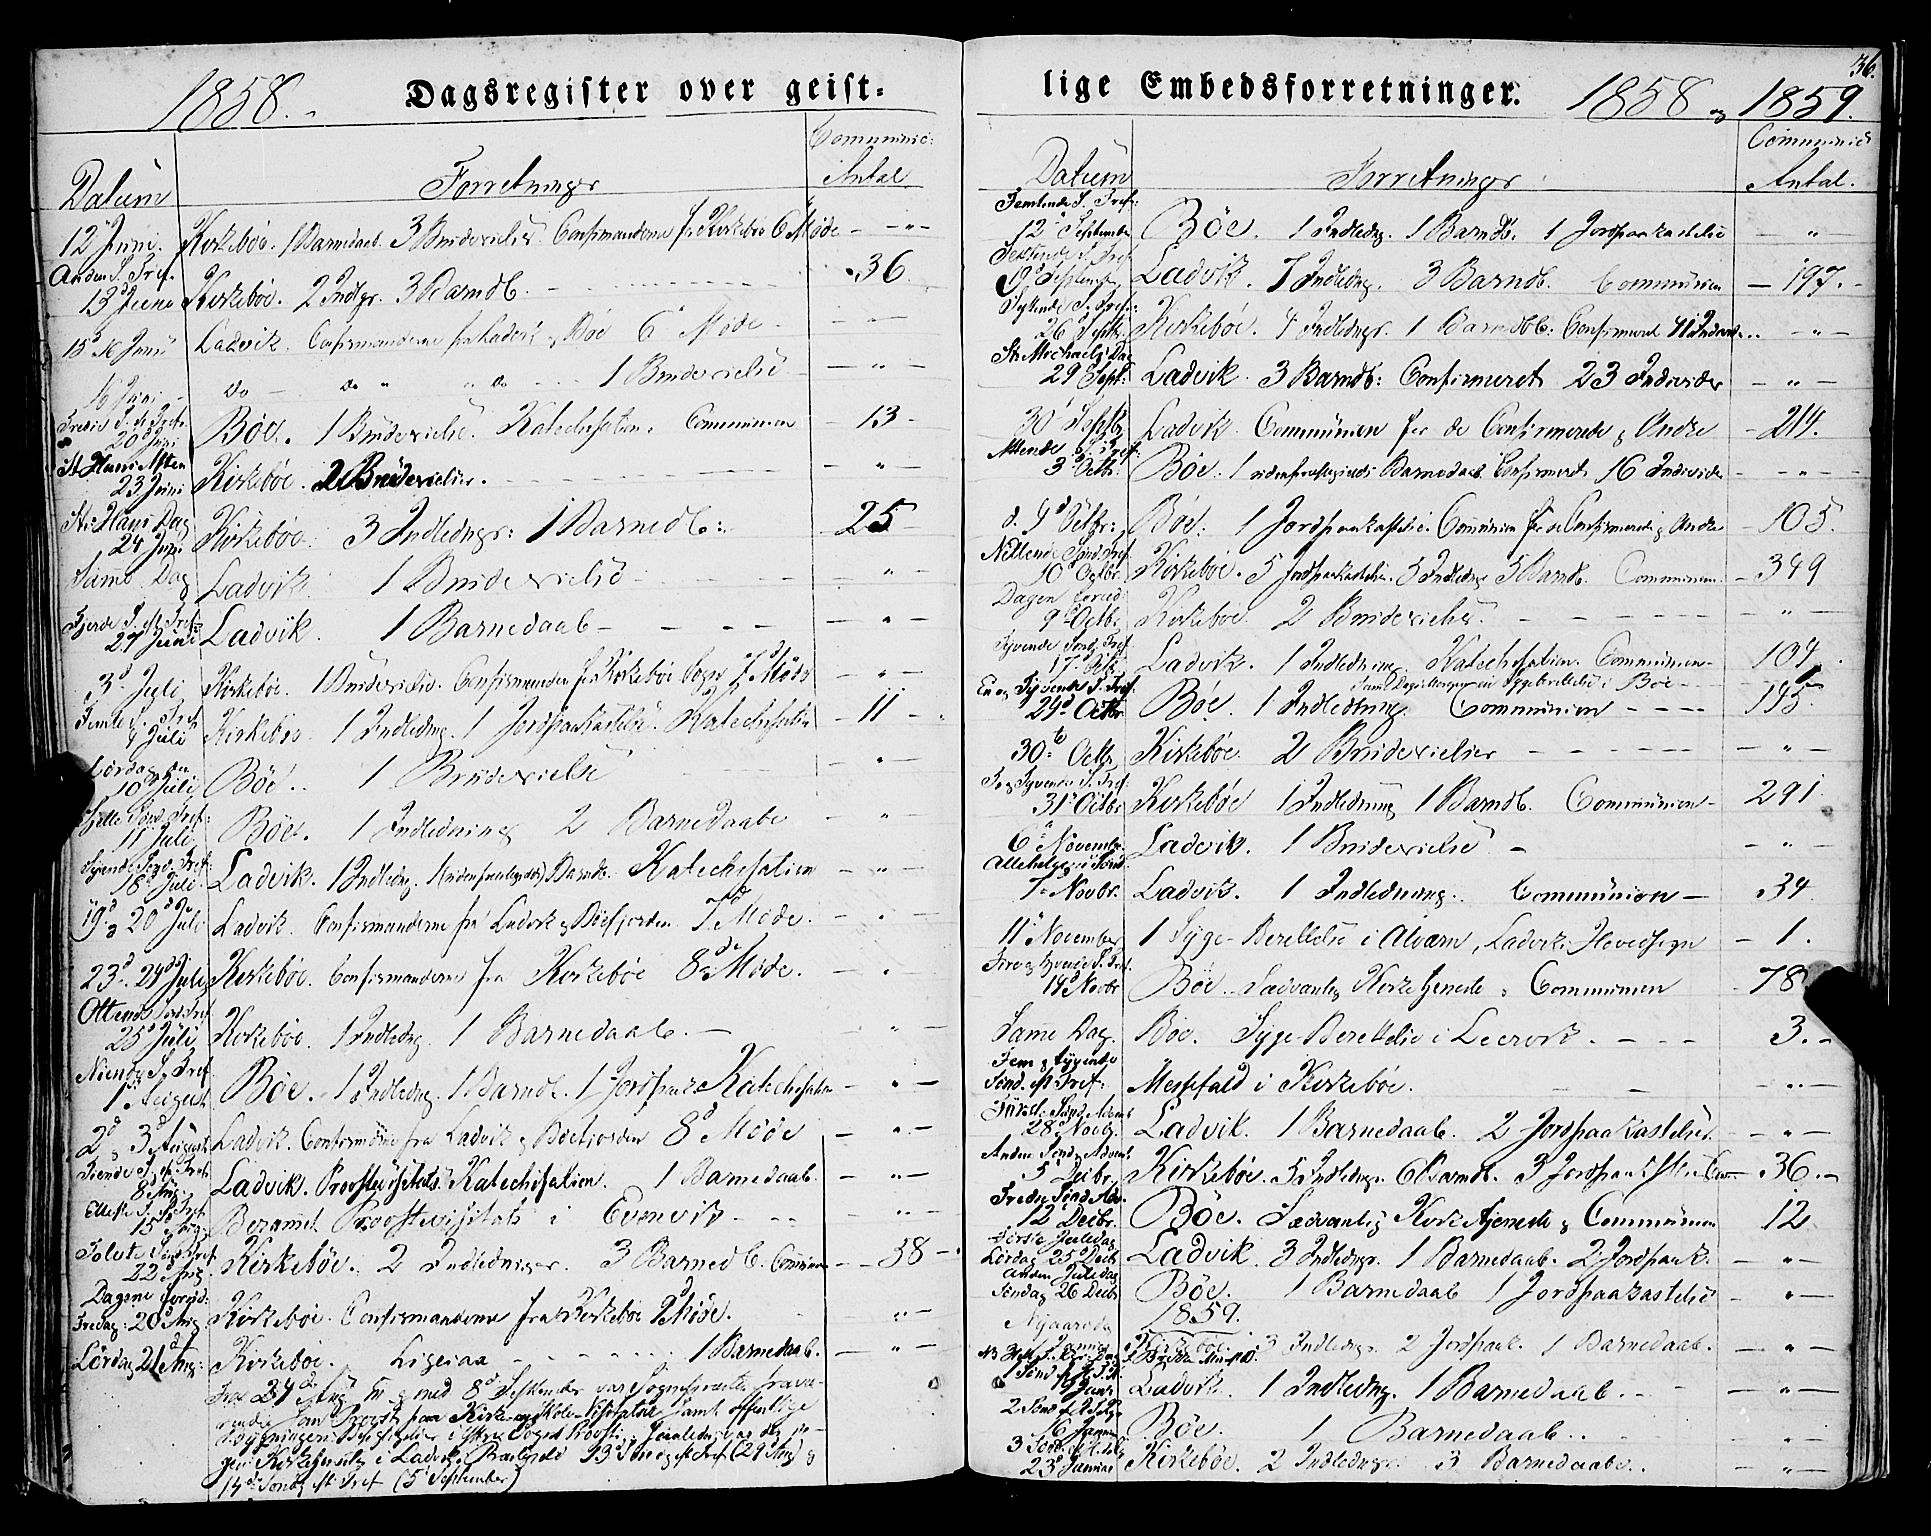 1858.
Dagsregister over geist-
Communic:
Datum Forretninger Antal
12 Juni. Kirkebøe. 1 Barnedaab. 3 Brudevielser. Confirmanderne fra Kirkebø 6 Møde - " -
Anden S. Tref.
13 Juni Kirkebøe. 2 Indlgr. 3 Barndb. 36
15 16 Juni Ladvik. Confirmanderne fra Ladvik og Bøe 6 Møde - " -
16 Juni do do " " do 1 Brudevielse - " -
Tredie S. e. Tref.
20 Juni Bøe. 1 Brudevielse. Katechisation. Communion 13
St. Hans Aften
23 Juni Kirkebøe. 2 Brudevielser. - " -
St: Hans Dag
24 Juni Kirkebøe. 3 Indledngr: 1 Barnedb: 25
Samme Dag Ladvik 1 Brudevielse - " -
Fjerde S. e. Tref.
27 Juni Ladvik. 1 Barnedaab - " -
3d Juli Kirkebøe. 1 Brudevielse. Confirmanden fra Kirkebøe Sogn 7d Møde - " -
Femte S. Tref
4 Juli Kirkebøe. 1 Indledng. 1 Jordpaakastelse. Katechisation 11
Lørdag den
10 Juli Bøe. 1 Brudevielse - " -
Sjette Sønd. Tref:
11 Juli Bøe. 1 Indledning 2 Barnedaabe - " -
Syvende Sønd. Tref:
18 Juli Ladvik. 1 Indledng. 1 (udenfraalagdt) Barndb. Katechisation - " -
19d 20d Juli Ladvik. Confirmanderne fra Ladvik og Bøefjorden 7d Møde. - " -
23d 24d Juli Kirkebøe. Confirmanderne fra Kirkebøe 8de Møde. "
Ottende Sønd. Tref
25 Juli Kirkebøe. 1 Indledng. 1 Barnedaab. - " -
Niende S. Tref
1 August Bøe. 1 Indledng. 1 Barndb. 1 Jordpaak. Katechisation - " -
2d og 3d August Ladvik. Confirmdne fra Ladvik og Bøefjorden 8d Møde - " -
Tiende S. e. Tref.
8 Aug. Ladvik. Provstevisitats. Katechisation. 1 Barnedaab. - " -
Ellefte S. e. Tref
15 Aug. Beramet Provstevisitats i Evenvik - " -
Tolvte Sønd. Tref
22 Aug. Kirkebøe. 2 Indledninger. 3 Barnedb. Communion 38
Dagene forud:
Fredag 20d Aug. Kirkebøe. Confirmanderne fra Kirkebøe 9 Møde. - " -
Lørdag 21d Aug: Kirkebøe. Ligesaa 1 Barnedaab. - " -
Fra 24d Aug til og med 8d September var Sognepræsten fravæ-
rende som Provst paa Kirke- og Skole-Visitatser samt offentlige
i Provsti.
gen Kirketjeneste i Ladvik Præstegjeld 13d Søndg. e. Tref (29 Aug) og
14de Søndg. e. Tref (5 September)
36.
lige Embedsforretninger. 1858 og 1859.
Communic
Datum Forretninger Antal.
Femtende S. Tref:
12 September Bøe. 1 Indledng. 1 Barndb. 1 Jordpaakastelse - " -
Sextende S. Tref
19d September Ladvik. 7 Indledng. 3 Barndb. Communion 197.
Syttende S. Tref:
26 Septbr. Kirkebøe. 4 Indledngr. 1 Barndb: Confirmeret 41 Individ. - " -
St. Michaels Dag
29 Sept: Ladvik. 3 Barndb: Confirmeret 23 Individer - " -
30 Septbr Ladvik. Communion for de Confirmerede og Andre 214.
Attende S. Tref:
3 Octbr. Bøe. 1 Barnedaab. Confirmeret 16 Individer - " -
d. 9d Octbr. Bøe: 1 Jordpaakastelse. Communion for de Confirmerede og Andre 105.
Nittende Sønd. Tref.
10 Octbr. Kirkebøe. 5 Jordpaakastelse. 5 Indledng. 5 Barndb. Communion 349
Dagen forud
9 Octbr. Kirkebøe. 2 Brudevielser. - " -
Tyvende Sønd. Tref.
17 Octbr Ladvik. 1 Indledning. Katechisation. Communion 104.
En og Tyvende S. Tref. Samme Dag i Bøe 1
29d Octbr Bøe. 1 Indledning. Communion 145.
30te Octbr. Kirkebøe. 2 Brudevielser - " -
To og Tyvende S. Tref:
31 Octbr Kirkebøe 1 Indledning 1 Barndb. Communion 291.
6 Novembr. Ladvik. 1 Brudevielse - " -
Allehelgens Sønd.
7 Novbr. Ladvik. 1 Indledning. Communion 34
11 November 1 Syge-Berettelse i Alværn, Ladviks Hovedsogn 1.
Fire og tyvende S. Tref.
14 Novbr Bøe. Sædvanlig Kirketjeneste og Communion 78
Samme Dag. Bøe. Syge-Berettelse i Leervik. 3.
Fem og tyvende
Sønd. e. Tref: Messefald i Kirkebøe. - " -
Første Sønd. Advent
28 Novbr. Ladvik. 1 Barnedaab. 2 Jordpaakastelser. - " -
Anden Søndg Advent
5 Decbr. Kirkebøe. 5 Indledngr. 6 Barndb. 3 Jordpaakst. Com 36.
Tredie Sønd. Adv.
12 Decbr. Bøe. Sædvanlig Kirketjeneste og Communion 12
Første Juledag
Lørdag 25 Decbr Ladvik 3 Indledngr. 1 Barnedaab. 2 Jordpaak. - " -
Anden Juledag
Søndag 26 Decbr Bøe. 1 Barnedaab 1 Jordpaakastelse - " -
1859.
Nyaarsdag
Kirkebøe. 3 Indledngr. 2 Jordpaak. 1 Barnedaab. - " -
9 Janr. Ladvik. 1 Indledng. 1 Barnedaab. - " -
16 Januar Bøe. 1 Barnedaab. - " -
23d Januar Kirkebøe. 2 Indledninger 3 Barnedaabe. - " -